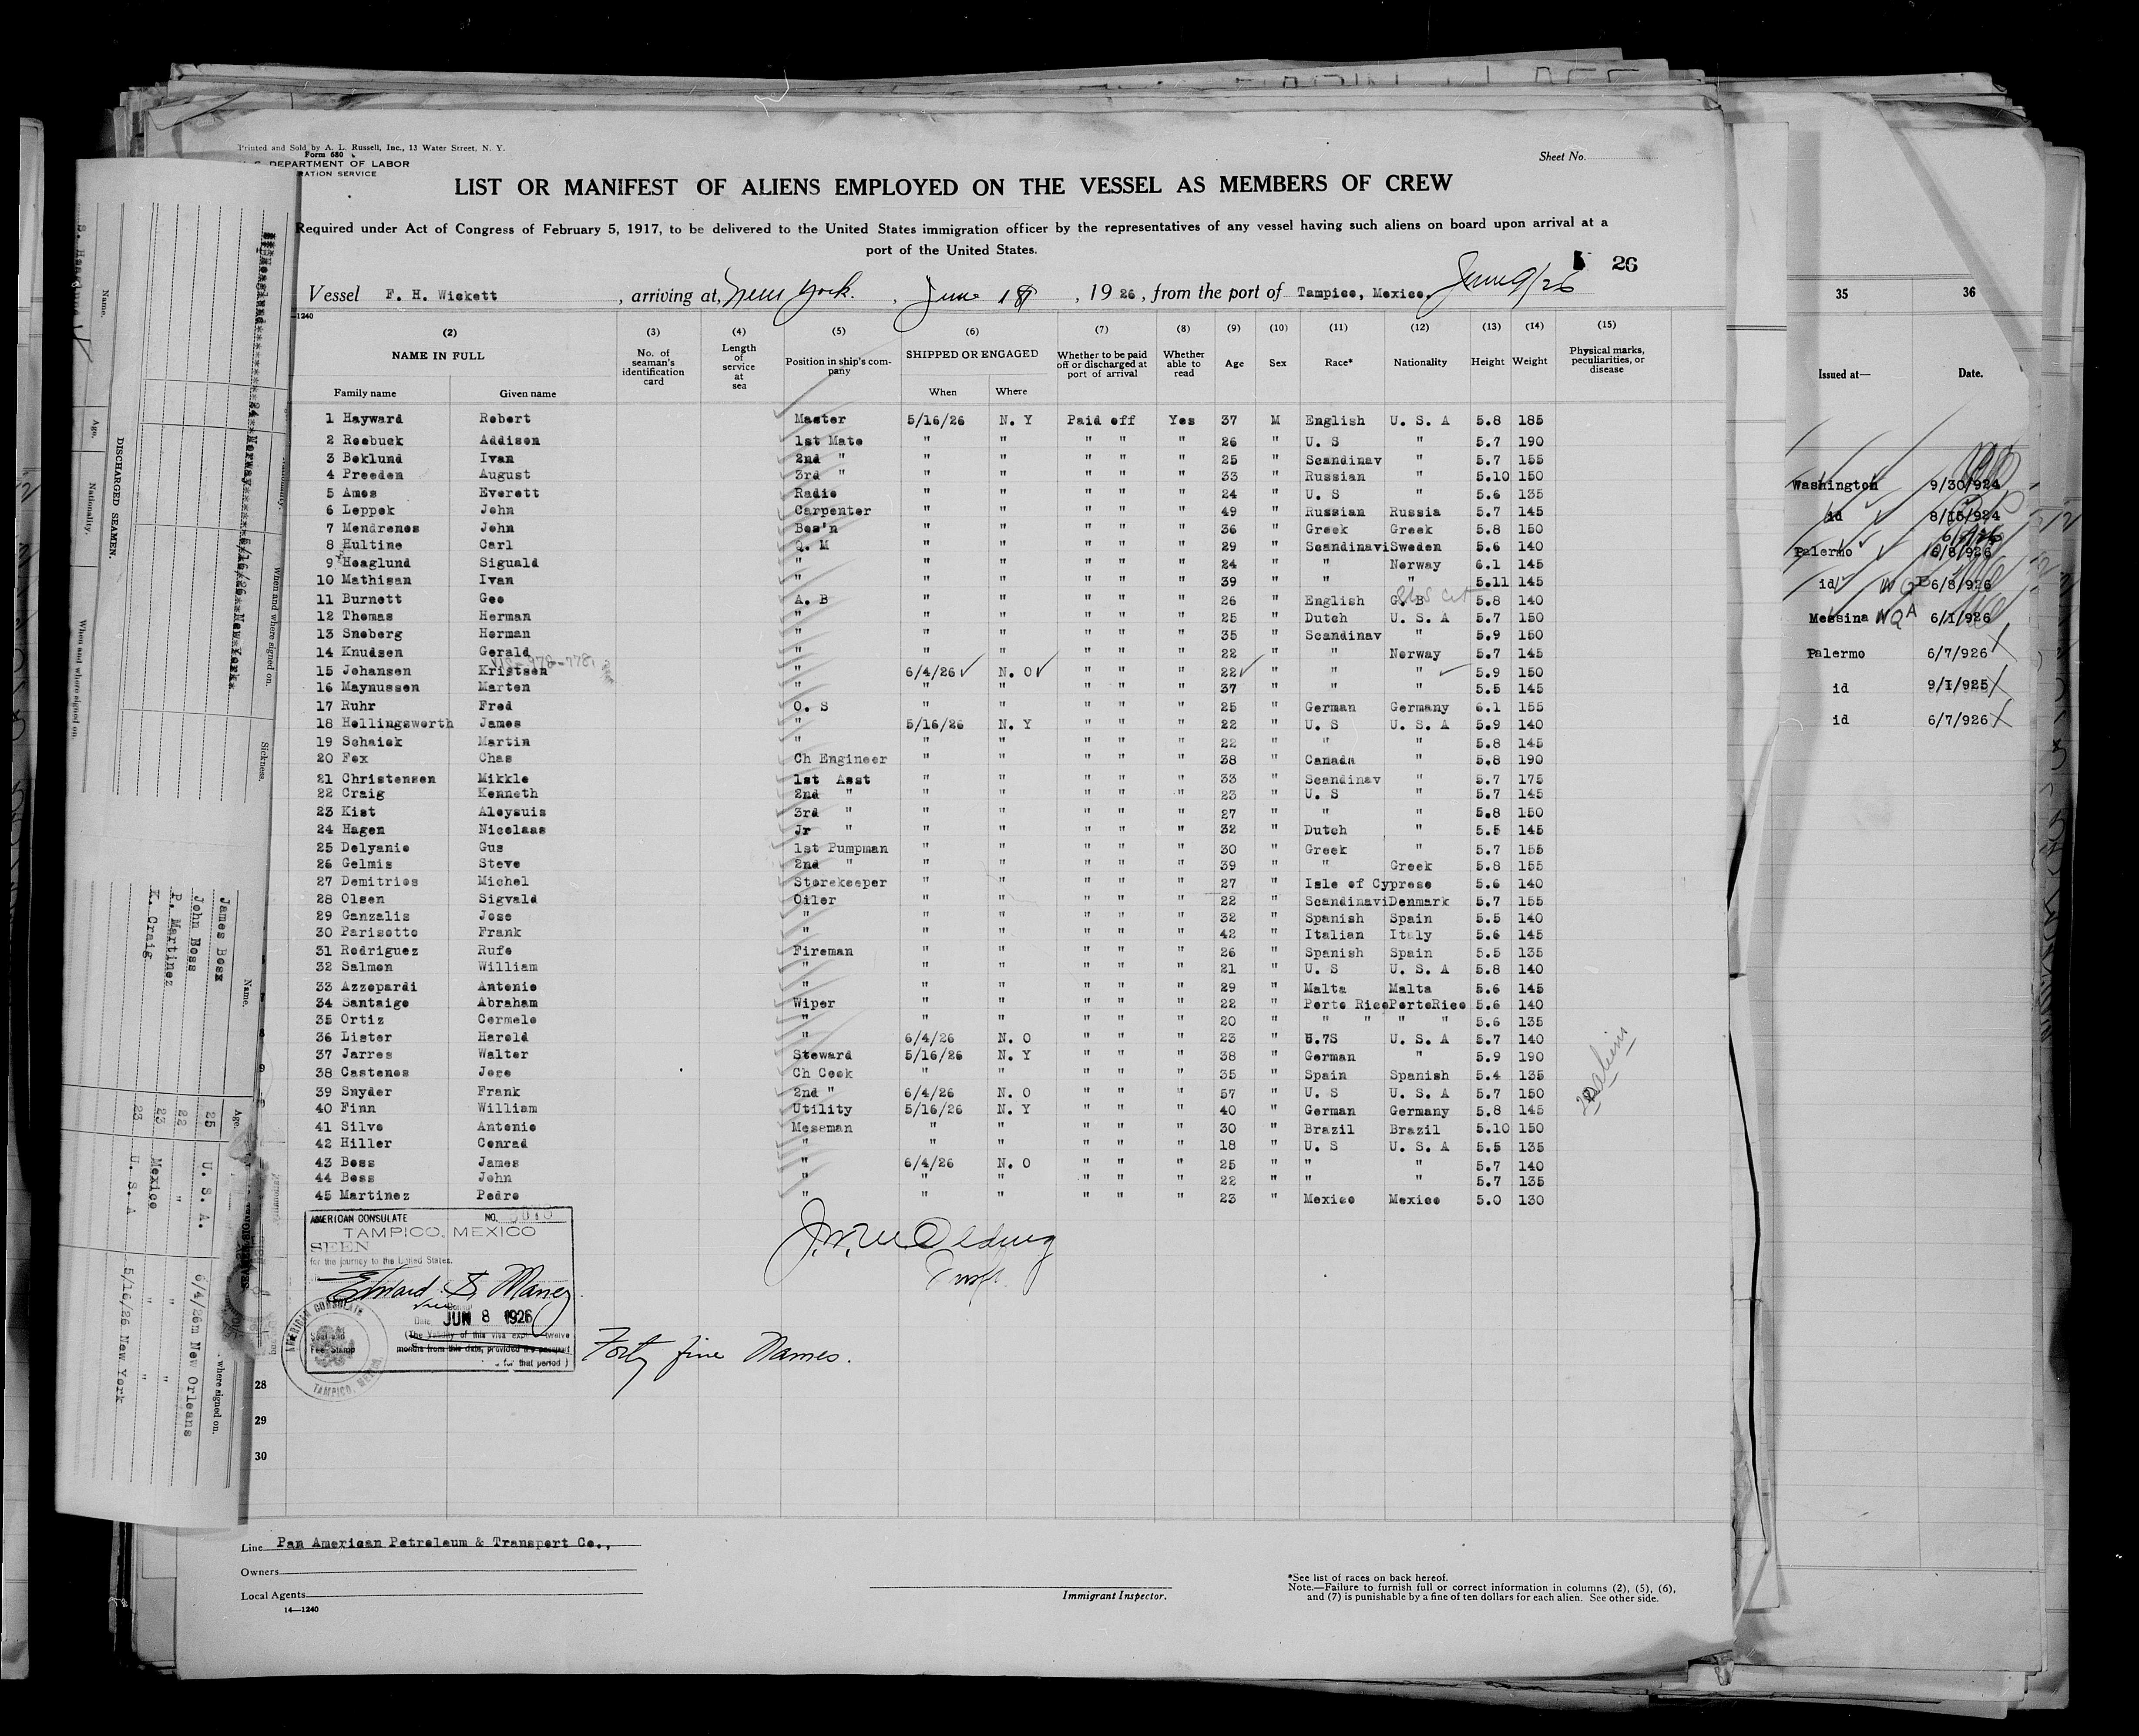 Printed and Sold by A. L. Russell, Inc., 13 Water Street, N. Y.
Form 680
DEPARTMENT OF LABOR
RATION SERVICE
Sheet No.
LIST OR MANIFEST OF ALIENS EMPLOYED ON THE VESSEL AS MEMBERS OF CREW
Required under Act of Congress of February 5, 1917, to be delivered to the United States immigration officer by the representatives of any vessel having such aliens on board upon arrival at a
port of the United States.
26
Vessel F. H. Wickett, arriving at, New York., June 18, 1926, from the port of Tampico, Mexico. June 9/26
—1240
(2) (3) (4) (5) (6) (7) (8) (9) (10) (11) (12) (13) (14) (15)
NAME IN FULL No. of seaman's identification card Length of service at sea Position in ship's company SHIPPED OR ENGAGED Whether to be paid off or discharged at port of arrival Whether able to read Age Sex Race* Nationality Height Weight Physical marks, peculiarities, or disease
Family name Given name When Where
1 Hayward Robert Master 5/16/26 N. Y Paid off Yes 37 M English U. S. A 5.8 185
2 Roebuck Addison 1st Mate " " " " " 26 " U. S " 5.7 190
3 Beklund Ivan 2nd " " " " " " 25 " Scandinav " 5.7 155
4 Preeden August 3rd " " " " " " 33 " Russian " 5.10 150
5 Ames Everett Radio " " " " " 24 " U. S " 5.6 135
6 Leppek John Carpenter " " " " " 49 " Russian Russia 5.7 145
7 Mendrenos John Bos'n " " " " " 36 " Greek Greek 5.8 150
8 Hultine Carl Q. M " " " " " 29 " Scandinavi Sweden 5.6 140
9 Hoaglund Siguald " " " " " " 24 " " Norway 6.1 145
10 Mathisan Ivan " " " " " " 39 " " " 5.11 145
11 Burnett Geo A. B " " " " " 26 " English G. B 5.8 140
12 Thomas Herman " " " " " " 25 " Dutch U. S. A 5.7 150
13 Sneberg Herman " " " " " " 35 " Scandinav " 5.9 150
14 Knudsen Gerald " " " " " " 22 " " Norway 5.7 145
15 Johansen Kristsen " 6/4/26 N. O " " " 22 " " " 5.9 150
16 Maynussen Marten " " " " " " 37 " " " 5.5 145
17 Ruhr Fred O. S " " " " " 25 " German Germany 6.1 155
18 Hollingsworth James " 5/16/26 N. Y " " " 22 " U. S U. S. A 5.9 140
19 Schaick Martin " " " " " " 22 " " " 5.8 145
20 Fox Chas Ch Engineer " " " " " 38 " Canada " 5.8 190
21 Christensen Mikkle 1st Asst " " " " " 33 " Scandinav " 5.7 175
22 Craig Kenneth 2nd " " " " " " 23 " U. S " 5.7 145
23 Kist Aloysuis 3rd " " " " " " 27 " " " 5.8 150
24 Hagen Nicolaas Jr " " " " " " 32 " Dutch " 5.5 145
25 Delyanis Gus 1st Pumpman " " " " " 30 " Greek " 5.7 155
26 Gelmis Steve 2nd " " " " " " 39 " " Greek 5.8 155
27 Demitrios Michel Storekeeper " " " " " 27 " Isle of Cyprese 5.6 140
28 Olsen Sigvald Oiler " " " " " 22 " Scandinavi Denmark 5.7 155
29 Ganzalis Jose " " " " " " 32 " Spanish Spain 5.5 140
30 Parisotto Frank " " " " " " 42 " Italian Italy 5.6 145
31 Rodriguez Rufo Fireman " " " " " 26 " Spanish Spain 5.5 135
32 Salmon William " " " " " " 21 " U. S U. S. A 5.8 140
33 Azzopardi Antonio " " " " " " 29 " Malta Malta 5.6 145
34 Santaigo Abraham Wiper " " " " " 22 " Porto Rico PortoRico 5.6 140
35 Ortiz Cormelo " " " " " " 20 " " " " " 5.6 135
36 Lister Harold " 6/4/26 N. O " " " 23 " U.7S U. S. A 5.7 140
37 Jarres Walter Steward 5/16/26 N. Y " " " 38 " German " 5.9 190
38 Castenos Jose Ch Cook " " " " " 35 " Spain Spanish 5.4 135
39 Snyder Frank 2nd " 6/4/26 N. O " " " 57 " U. S U. S. A 5.7 150
40 Finn William Utility 5/16/26 N. Y " " " 40 " German Germany 5.8 145
41 Silvo Antonio Messman " " " " " 30 " Brazil Brazil 5.10 150
42 Hiller Conrad " " " " " " 18 " U. S U. S. A 5.5 135
43 Boss James " 6/4/26 N. O " " " 25 " " " 5.7 140
44 Boss John " " " " " " 22 " " " 5.7 135
45 Martinez Pedro " " " " " " 23 " Mexico Mexico 5.0 130
aliens
AMERICAN CONSULATE NO.
TAMPICO, MEXICO
SEEN
for the journey to the United States.
Edward S. Maney
Vice Consul
Date JUN 8 1926
(The Validity of this visa expires twelve
months from this date, provided the passport
for that period)
Seal and
Fee Stamp
AMERICAN CONSULATE
TAMPICO, MEXICO
Forty five Names.
28
29
30
Line Pan American Petroleum & Transport Co.,
Owners
Local Agents
14—1240
Immigrant Inspector.
*See list of races on back hereof.
Note.—Failure to furnish full or correct information in columns (2), (5), (6),
and (7) is punishable by a fine of ten dollars for each alien. See other side.
Name. Age. Nationality. When and where signed on.
DISCHARGED SEAMEN.
When and where signed on. Sickness.
24 Norway 5/16/26 New York
Name. Age. where signed on.
James Bosx 25 U. S. A. 6/4/26m New Orleans
John Boss 22 " "
P. Martinez 23 Mexico "
K. Craig 23 U. S. A. 5/16/26 New York
35 36
Issued at— Date.
Washington 9/30/924
id 8/15/924
Palermo 6/8/926
id 6/8/926
Messina 6/1/926
Palermo 6/7/926
id 9/1/925
id 6/7/926